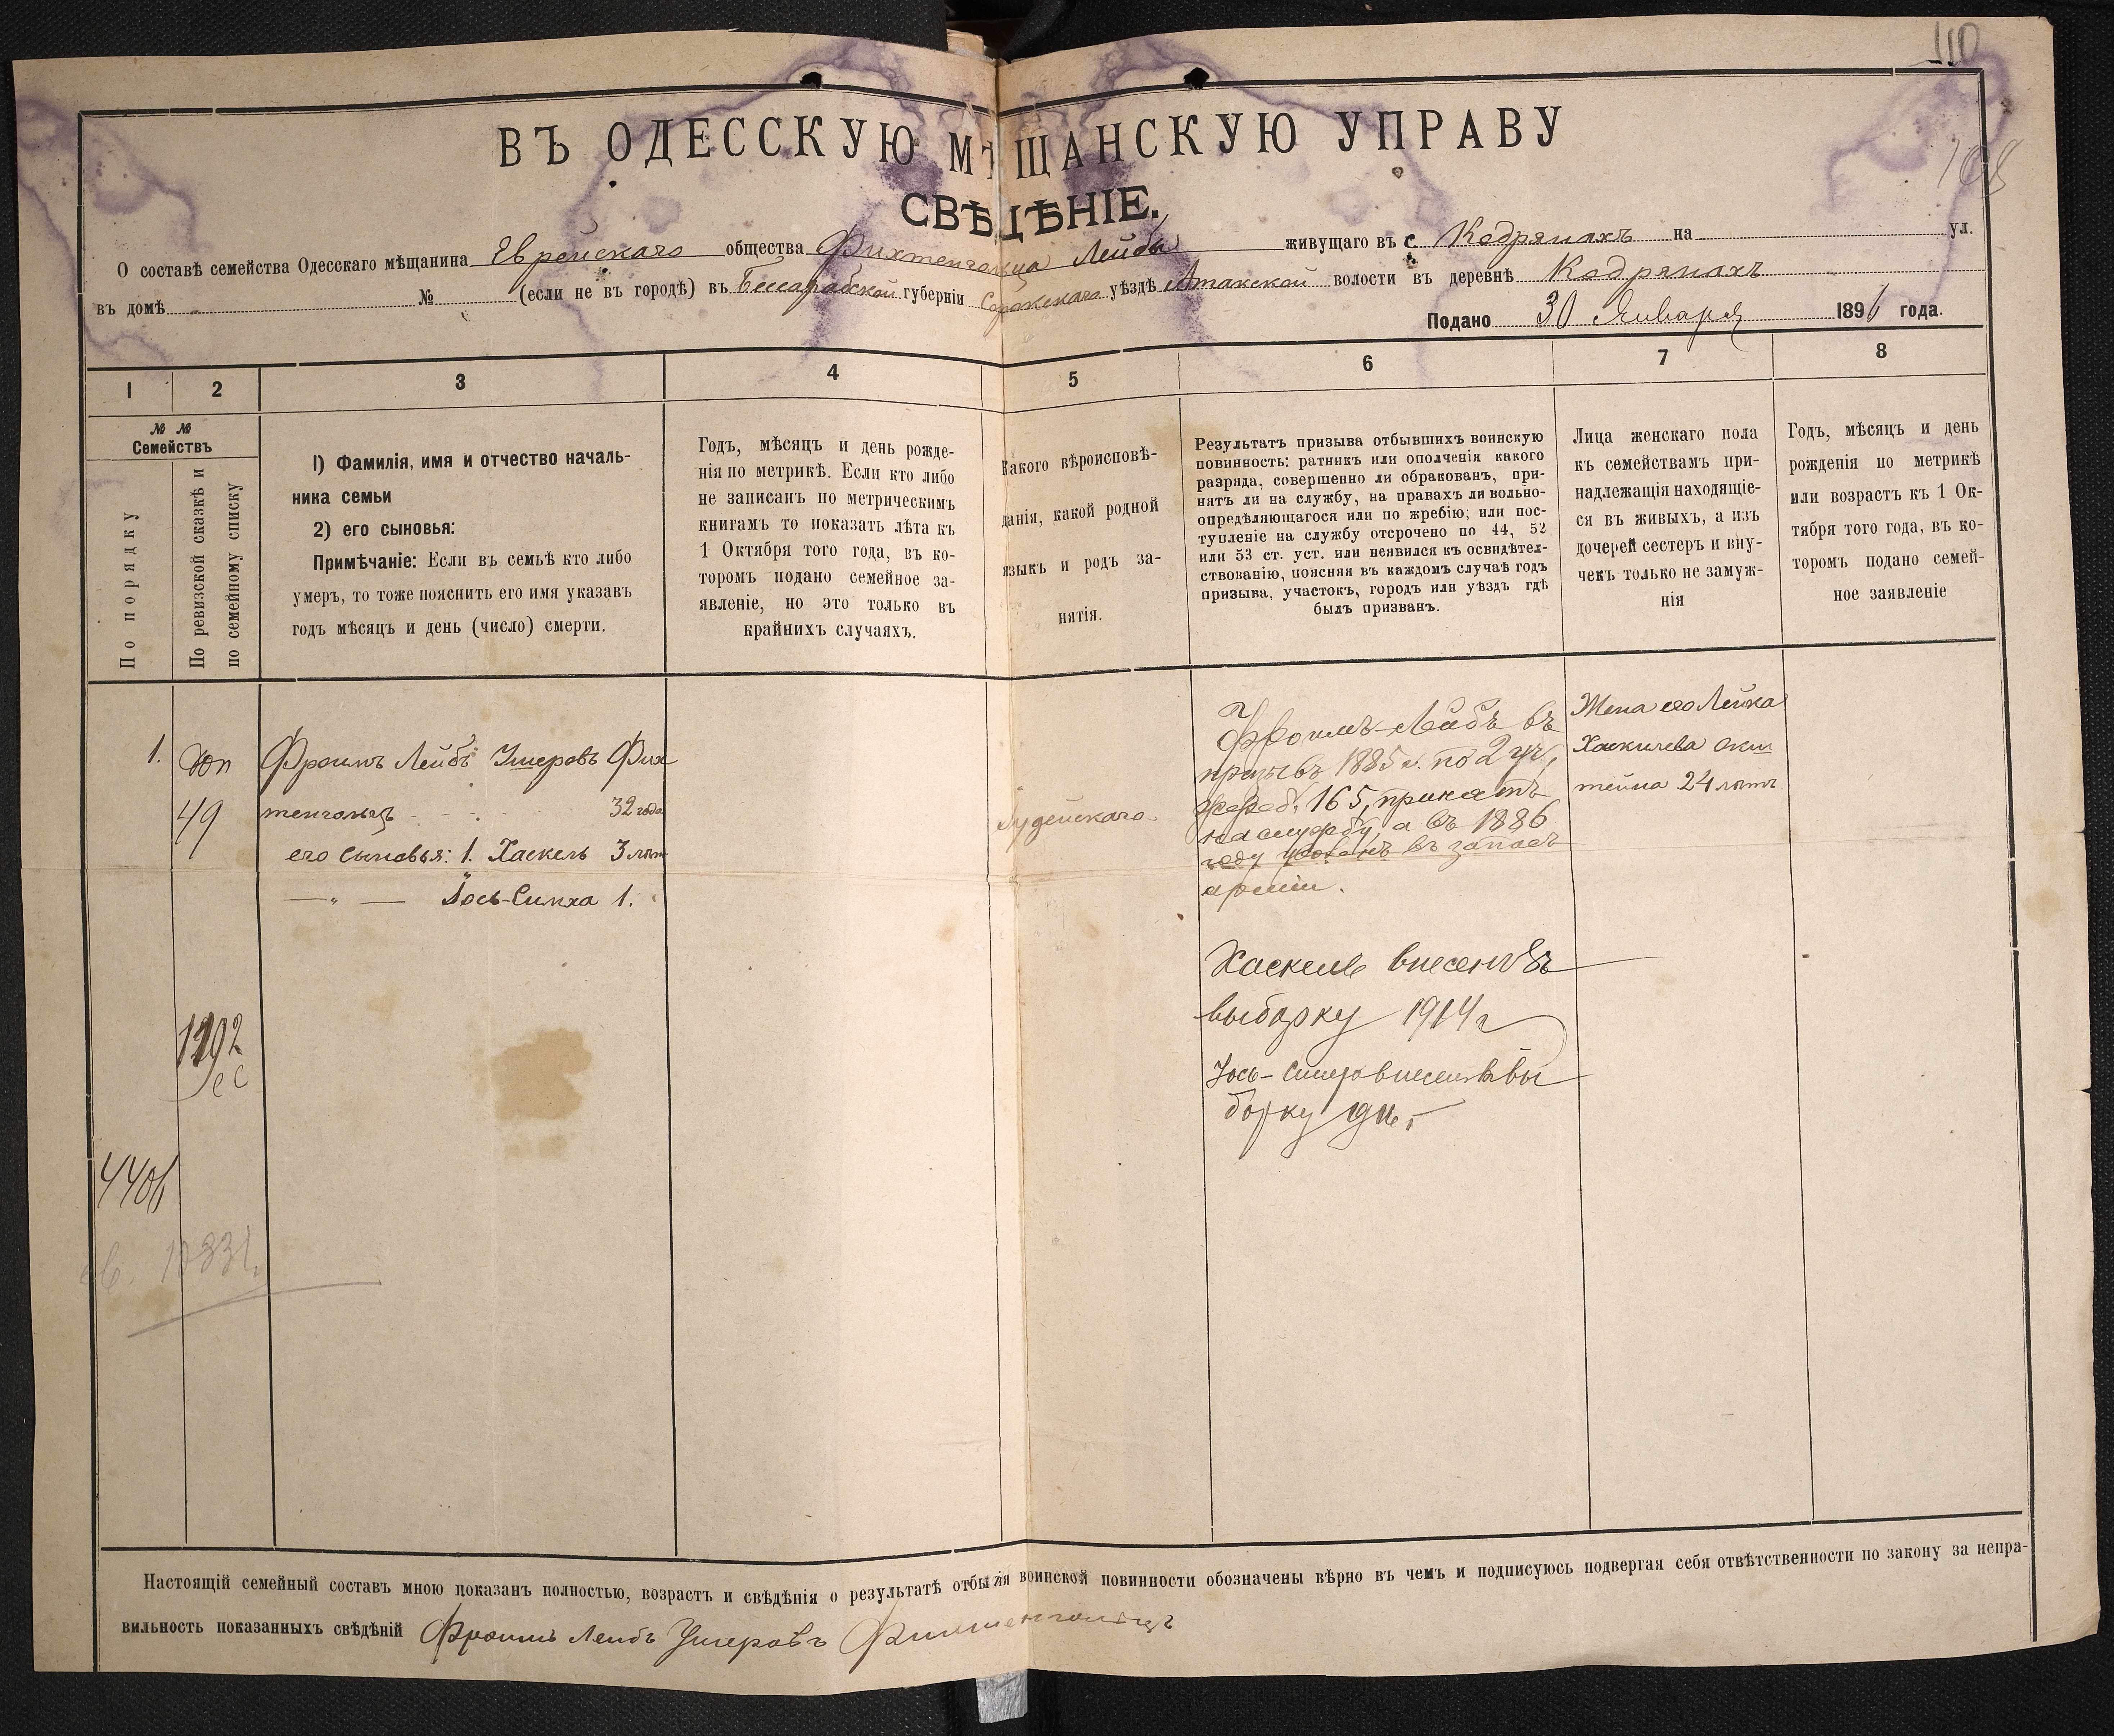 110
108
ВЪ ОДЕССКУЮ МѢЩАНСКУЮ УПРАВУ
СВѢДѢНІЕ.
О составѣ семейства Одесскаго мѣщанина Еврейскаго общества Фихтенгольца Лейбы живущаго въ с. Кодрянахъ на ул.
въ домѣ № (если не въ городѣ) въ Бессарабской губерніи Сорокскаго уѣздѣ Атакской волости въ деревнѣ Кодрянахъ
Подано 30 Января 1896 года.
1 2 3 4 5 6 7 8
№ №
Семействъ
По порядку
По ревизской сказкѣ и
по семейному списку
1) Фамилія, имя и отчество началь-
ника семьи
2) его сыновья:
Примѣчаніе: Если въ семьѣ кто либо
умеръ, то тоже пояснить его имя указавъ
годъ мѣсяцъ и день (число) смерти.
Годъ, мѣсяцъ и день рожде-
нія по метрикѣ. Если кто либо
не записанъ по метрическимъ
книгамъ то показать лѣта къ
1 Октября того года, въ ко-
торомъ подано семейное за-
явленіе, но это только въ
крайнихъ случаяхъ.
Какого вѣроисповѣ-
данія, какой родной
языкъ и родъ за-
нятія.
Результатъ призыва отбывшихъ воинскую
повинность: ратникъ или ополченія какого
разряда, совершенно ли обракованъ, при-
нятъ ли на службу, на правахъ ли вольно-
опредѣляющагося или по жребію; или пос-
тупленіе на службу отсрочено по 44, 52
или 53 ст. уст. или неявился къ освидѣтел-
ствованію, поясняя въ каждомъ случаѣ годъ
призыва, участокъ, городъ или уѣздъ гдѣ
былъ призванъ.
Лица женскаго пола
къ семействамъ при-
надлежащія находящіе-
ся въ живыхъ, а изъ
дочерей сестеръ и вну-
чекъ только не замуж-
нія
Годъ, мѣсяцъ и день
рожденія по метрикѣ
или возрастъ къ 1 Ок-
тября того года, въ ко-
торомъ подано семей-
ное заявленіе
1.
49
Фроимъ Лейбъ Ушеровъ Фих
тенгольцъ 32 года
его сыновья: 1. Хаскель 3 лѣтъ
— „ — Іось-Симха 1.
Іудейскаго
Фроимъ-Лейбъ въ
призывъ 1885 г. по 2 уч,
жреб. 165, принятъ
на службу, а въ 1886
году уволенъ въ запасъ
арміи.
Хаскель внесенъ въ
выборку 1914 г
Іось-Симха внесенъ въ вы
борку
Жена его Лейка
Хаскилева Окш
тейна 24 лѣтъ
1292
4406
10331.
Настоящій семейный составъ мною показанъ полностью, возрастъ и свѣдѣнія о результатѣ отбытія воинской повинности обозначены вѣрно въ чемъ и подписуюсь подвергая себя отвѣтственности по закону за непра-
вильность показанныхъ свѣдѣній Фроимъ Лейбъ Ушеровъ Фихтенгольцъ